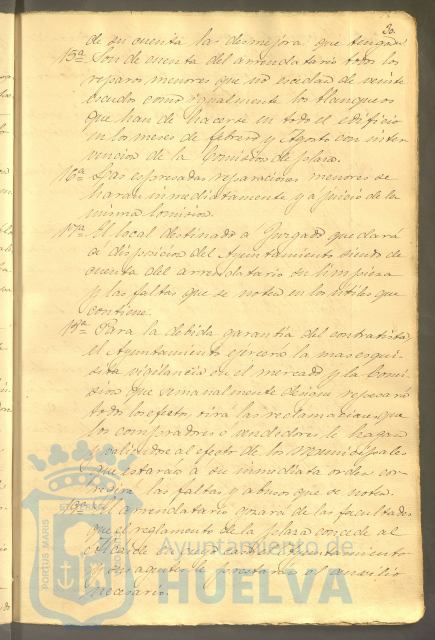 30.
de su cuenta las desmejora que tengan.
15ª Son de cuenta del arrendatario todos los
reparos menores que no escedan de veinte
escudos como igualmente los blanqueos
que han de hacerse en todo el edificio
en los meses de febrero y Agosto con inter
vencion de la Comision de plaza.
16ª Las espresadas reparaciones menores se
haran inmediatamente y a juicio de la
misma Comision.
17ª El local destinado a Juzgado quedará
á disposicion del Ayuntamiento siendo de
cuenta del arrendatario su limpieza
y las faltas que se noten en los útiles que
contiene.
18ª Para la debida garantia del contratista,
el Ayuntamiento ejercerá la mas esqui
sita vigilancia en el mercado y la Comi
sion que semanalmente repesará
todos los efectos, oirá las reclamaciones que
los compradores o vendedores le hagan
y al efecto de los municipales
que estaran a su inmediata orden co-
las faltas y abusos que se noten.
19ª El arrendatario de las facultades
que el reglamento de la plaza concede al
Alcaide y el Ayuntamiento
el auxilio
necesario.
PORTUS MARIS
Ayuntamiento de
HUELVA